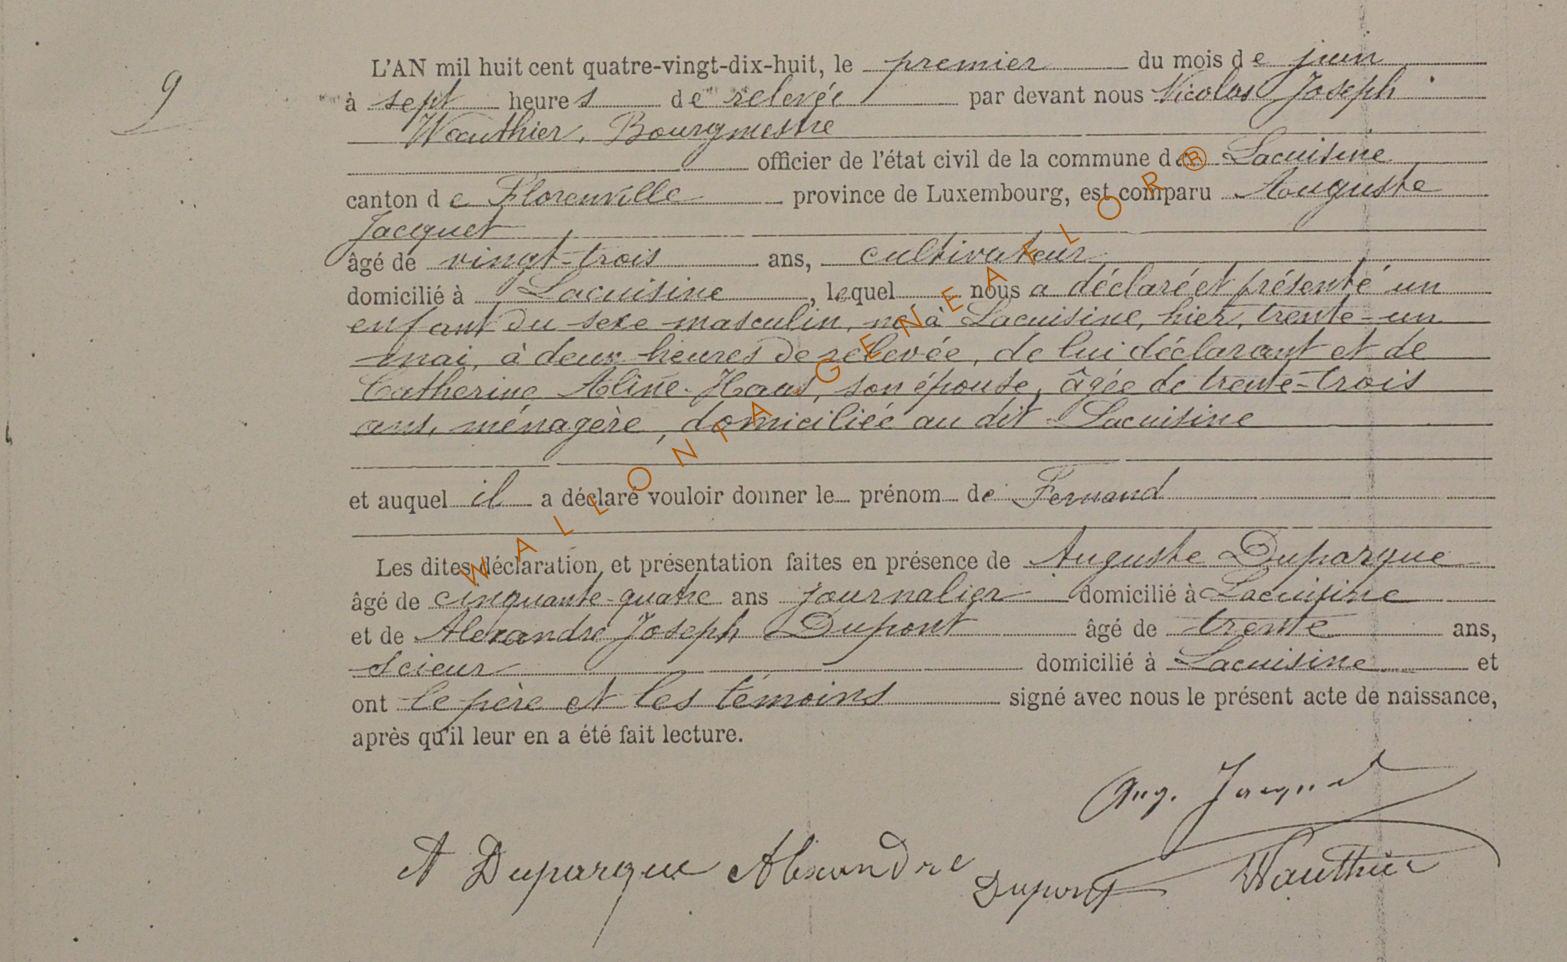 9
L'AN mil huit cent quatre-vingt-dix-huit, le premier du mois de juin
à sept heures de relevée par devant nous Nicolas Joseph
Wauthier, Bourgmestre
officier de l'état civil de la commune de Lacuisine
canton de Florenville province de Luxembourg, est comparu Auguste
Jacquet
âgé de vingt-trois ans, cultivateur
domicilié à Lacuisine, lequel nous a déclaré et présenté un
enfant du sexe masculin, né à Lacuisine, hier, trente-un
mai, à deux heures de relevée, de lui déclarant et de
Catherine Aline Haas, son épouse, âgée de trente-trois
ans, ménagère, domiciliée au dit Lacuisine
et auquel il a déclaré vouloir donner le prénom de Fernand
Les dites déclaration et présentation faites en présence de Auguste Duparque
âgé de cinquante-quatre ans journalier domicilié à Lacuisine
et de Alexandre Joseph Dupont âgé de trente ans,
scieur domicilié à Lacuisine et
ont le père et les témoins signé avec nous le présent acte de naissance,
après qu'il leur en a été fait lecture.
Aug. Jacquet
A Duparque Alexandre Dupont Wauthier
WALLONIA GENEALOR ®